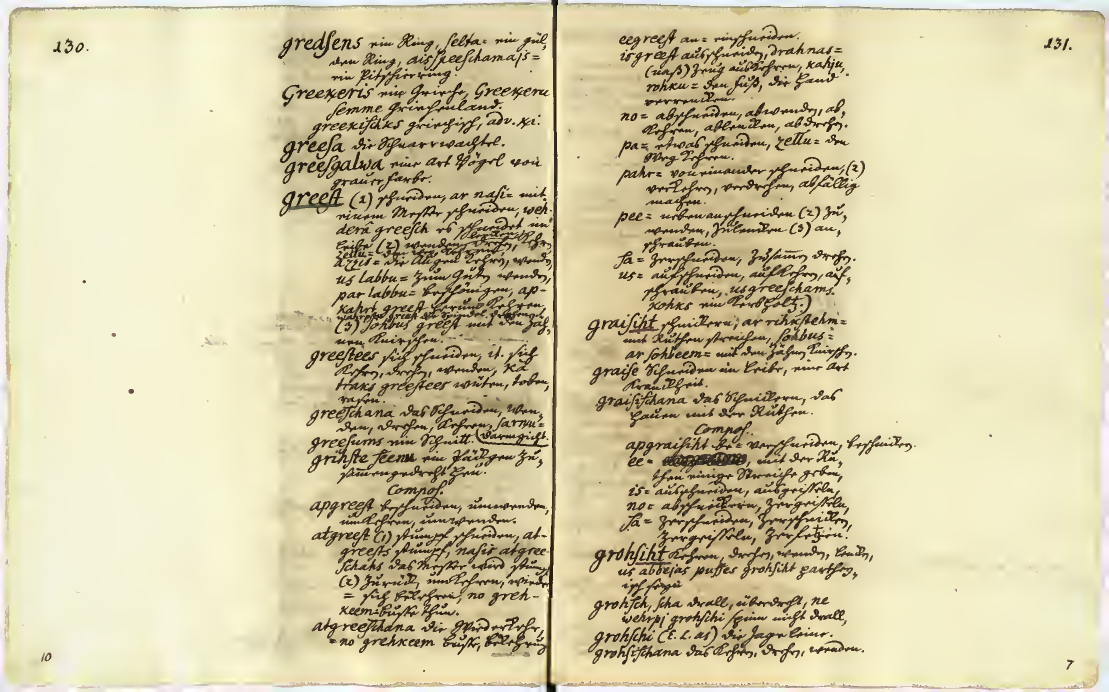 130.
gredsens ein Ring, selta= ein gül,
den Ring, aisspeeschamajs=
ein Pitschierring.
Greekeris ein Grieche, Greekeru
semme Griechenland.
greekischks griechisch, adv. ki.
greesa die Schnarrwachtel.
greesgalwa eine Art Vögel von
grauer farbe.
greest (1) schneiden, ar nasi= mit
einem Messer schneiden, weh-
derâ greesch es schneidet im
Leibe (2) wenden, drehen,
azzis= die Augen kehren, wenden
us labbu= zum Guten wenden,
par labbu= beschönigen, ap-
kahrt greest herum kehren,
(3) sohbus greest mit den Zäh,
nen knirschen.
greestees sich schneiden, it. sich
kehren, drehen, wenden, kâ
traks greestees wüten, toben,
rasen.
greeschana das Schneiden, wen,
den, drehen, kehren, sarnu=
greesums ein Schnitt. (darmgicht.
grihste seenu ein Päckgen zu,
sammengedreht Heu.
Compos.
apgreest beschneiden, umwenden,
umkehren, umwenden.
atgreest (1) stumpf schneiden, at-
greests stumpf, nasis atgree-
schahs das Messer wird stumpf
(2) zurück, umkehren, wieder
= sich bekehren, no greh-
keem busse thun.
atgreeschana die Wiederkehr,
=no grehkeem busse, bekehrung
10
eegreest an= einschneiden.
isgreest ausschneiden, drahnas=
(naß) Zeug auskehren, kahju,
rohku= den fuß, die Hand
verrenken.
no= abschneiden, abwenden, ab,
kehren, ablenken, abdrehen.
pa= etwas schneiden, zellu= den
Weg kehren.
pahr= von einander schneiden, (2)
verkehren, verdrehen, abfällig
machen.
pee= neben anschneiden (2) zu,
wenden, zulenken (3) an,
schrauben.
sa= zerschneiden, zusamm drehen.
us= aufschneiden, aufkehren, auf,
schrauben, usgreeschams
kohks ein Kerbholtz.)
graisiht schnitzern; ar rihkstehm=
mit Ruthen streichen, sohbus=
ar sohbeem= mit den Zähnen knirschen.
graise Schneiden im Leibe, eine Art
Kranckheit.
graisischana das Schnitzern, das
hauen mit der Ruthen.
Compos.
apgraisiht be= verschneiden, beschnitzen.
ee= mit der Ru,
then einige Streiche geben,
is= ausschneiden, ausgeisseln,
no= abschnitzern, zergeisseln,
sa= zerschneiden, zerschnitzen,
zergeisseln, zerfetzen.
grohsiht kehren, drehen, wenden, lenken,
us abbejas pusses grohsiht
grohsch, scha drall, überdreht, ne
wehrpj grohschi spinn nicht drall,
grohschi (E. L. as) die Jageleine.
grohsischana das kehren, drehen, wenden.
131.
7